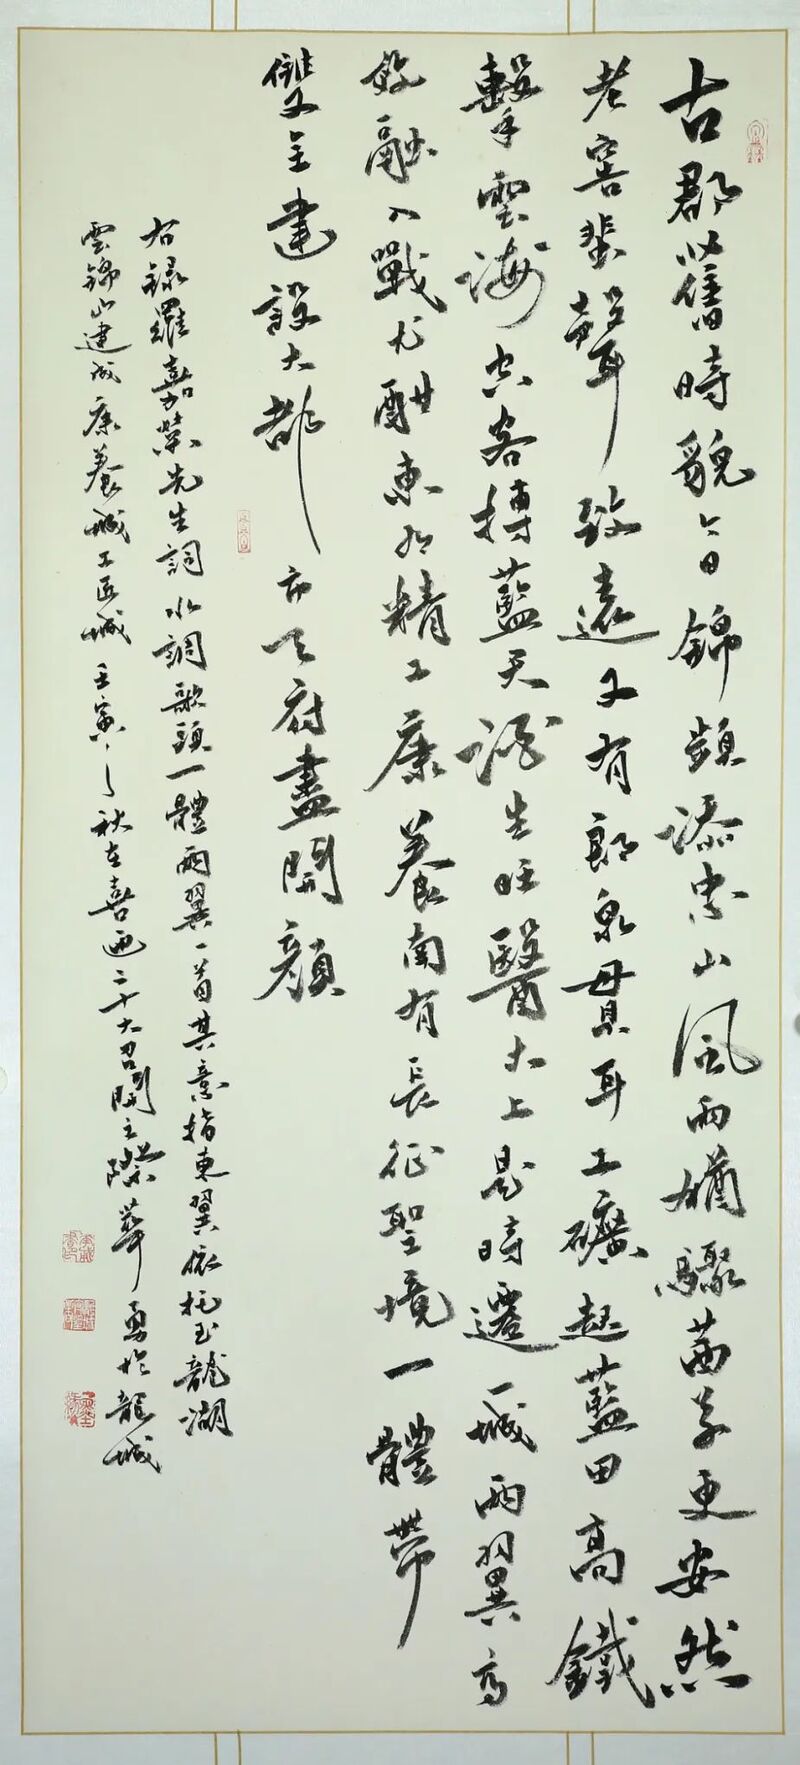 古郡舊時貌今日錦頻添忠山風雨猶驟茜草更安然
老窖蜚聲致遠又有郎泉貫耳工礦起藍田高鐵
擊雲海空客搏藍天 酒生旺醫大上是時遷一城兩翼高
效融入戰尤酣東有精工康養南有長征聖境一體帶
雙全建設大都市天府盡開顏
右錄羅嘉榮先生詞水調歌頭一體兩翼一首其意指東翼依托玉龍湖
雲錦山建成康養城工匠城壬寅之秋在喜迎二十大召開之際 勇於龍城